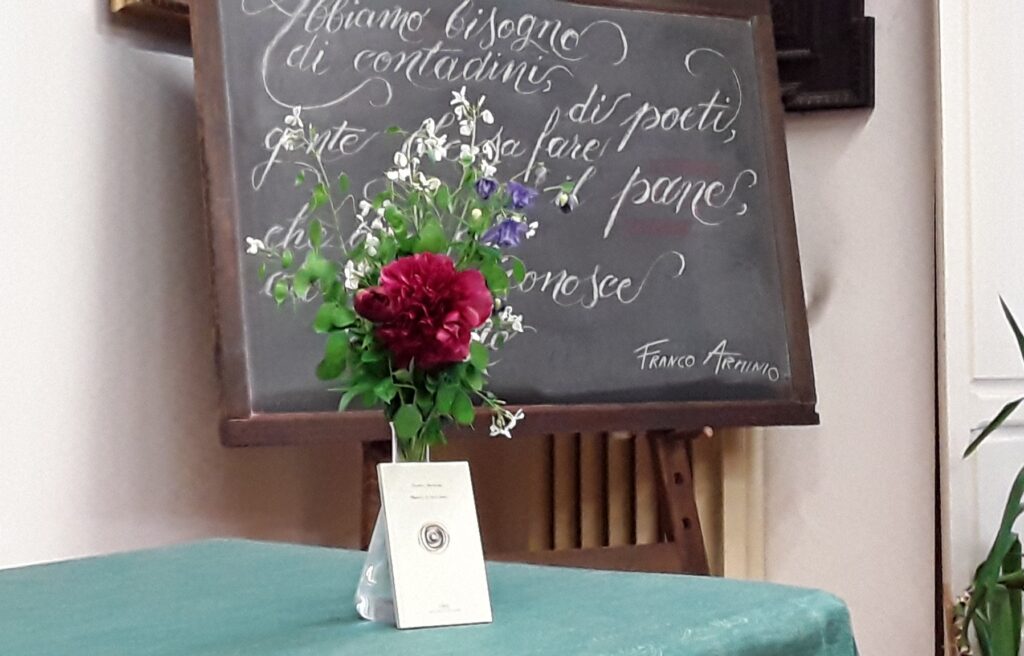 Abbiamo bisogno
di contadini,
di poeti,
gente che sa fare
il pane,
che
conosce
Franco Arminio